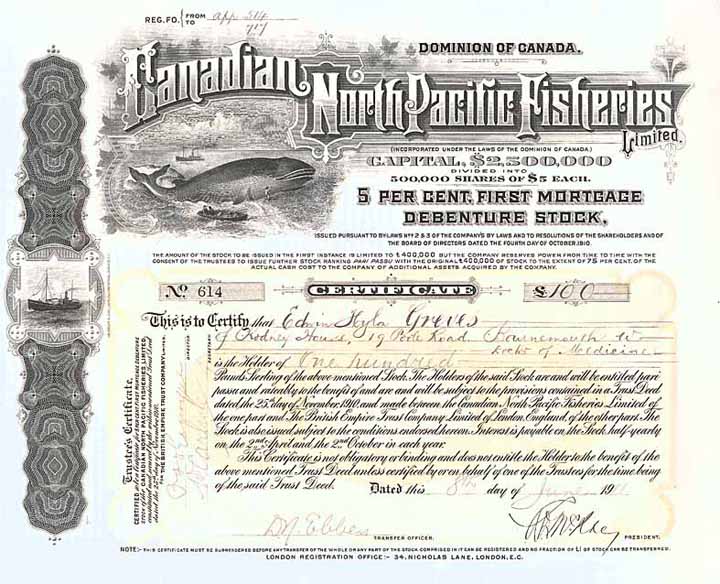 REG. FO. { FROM app 514
TO 717
DOMINION OF CANADA.
Canadian
North Pacific Fisheries
Limited.
(INCORPORATED UNDER THE LAWS OF THE DOMINION OF CANADA.)
CAPITAL, $2,500,000
DIVIDED INTO
500,000 SHARES OF $5 EACH.
5 PER CENT. FIRST MORTGAGE
DEBENTURE STOCK,
ISSUED PURSUANT TO BYLAWS Nos 2 & 3 OF THE COMPANY'S BY LAWS AND TO RESOLUTIONS OF THE SHAREHOLDERS AND OF
THE BOARD OF DIRECTORS DATED THE FOURTH DAY OF OCTOBER, 1910.
THE AMOUNT OF THE STOCK TO BE ISSUED IN THE FIRST INSTANCE IS LIMITED TO £400,000 BUT THE COMPANY RESERVES POWER FROM TIME TO TIME WITH THE
CONSENT OF THE TRUSTEES TO ISSUE FURTHER STOCK RANKING PARI PASSU WITH THE ORIGINAL £400,000 OF STOCK TO THE EXTENT OF 75 PER CENT. OF THE
ACTUAL CASH COST TO THE COMPANY OF ADDITIONAL ASSETS ACQUIRED BY THE COMPANY.
No 614
CERTIFICATE
£100
This is to Certify that Edwin Hyla Greves
of Rodney House, 19 Poole Road, Bournemouth W.
Doctor of Medicine
is the Holder of One hundred
Pounds Sterling of the above mentioned Stock. The Holders of the said Stock are and will be entitled pari
passu and rateably to the benefit of and are and will be subject to the provisions contained in a Trust Deed
dated the 25th day of November, 1910, and made between the Canadian North Pacific Fisheries Limited of
the one part, and The British Empire Trust Company Limited of London, England, of the other part. The
Stock is also issued subject to the conditions endorsed hereon. Interest is payable on the Stock half-yearly
on the 2nd April and the 2nd October in each year.
This Certificate is not obligatory or binding and does not entitle the Holder to the benefit of the
above mentioned Trust Deed unless certified by or on behalf of one of the Trustees for the time being
of the said Trust Deed.
Dated this 8th day of June 1911
TRANSFER OFFICER.
PRESIDENT.
NOTE:- THIS CERTIFICATE MUST BE SURRENDERED BEFORE ANY TRANSFER OF THE WHOLE OR ANY PART OF THE STOCK COMPRISED IN IT CAN BE REGISTERED AND NO FRACTION OF £1 OF STOCK CAN BE TRANSFERRED.
LONDON REGISTRATION OFFICE:- 34, NICHOLAS LANE, LONDON, E.C.
Trustee's Certificate.
CERTIFIED to be a Certificate for FIRST MORTGAGE DEBENTURE
STOCK of the CANADIAN NORTH PACIFIC FISHERIES LIMITED,
constituted and secured by the within-mentioned Trust Deed
dated the 25th day of November 1910.
FOR THE BRITISH EMPIRE TRUST COMPANY, LIMITED.